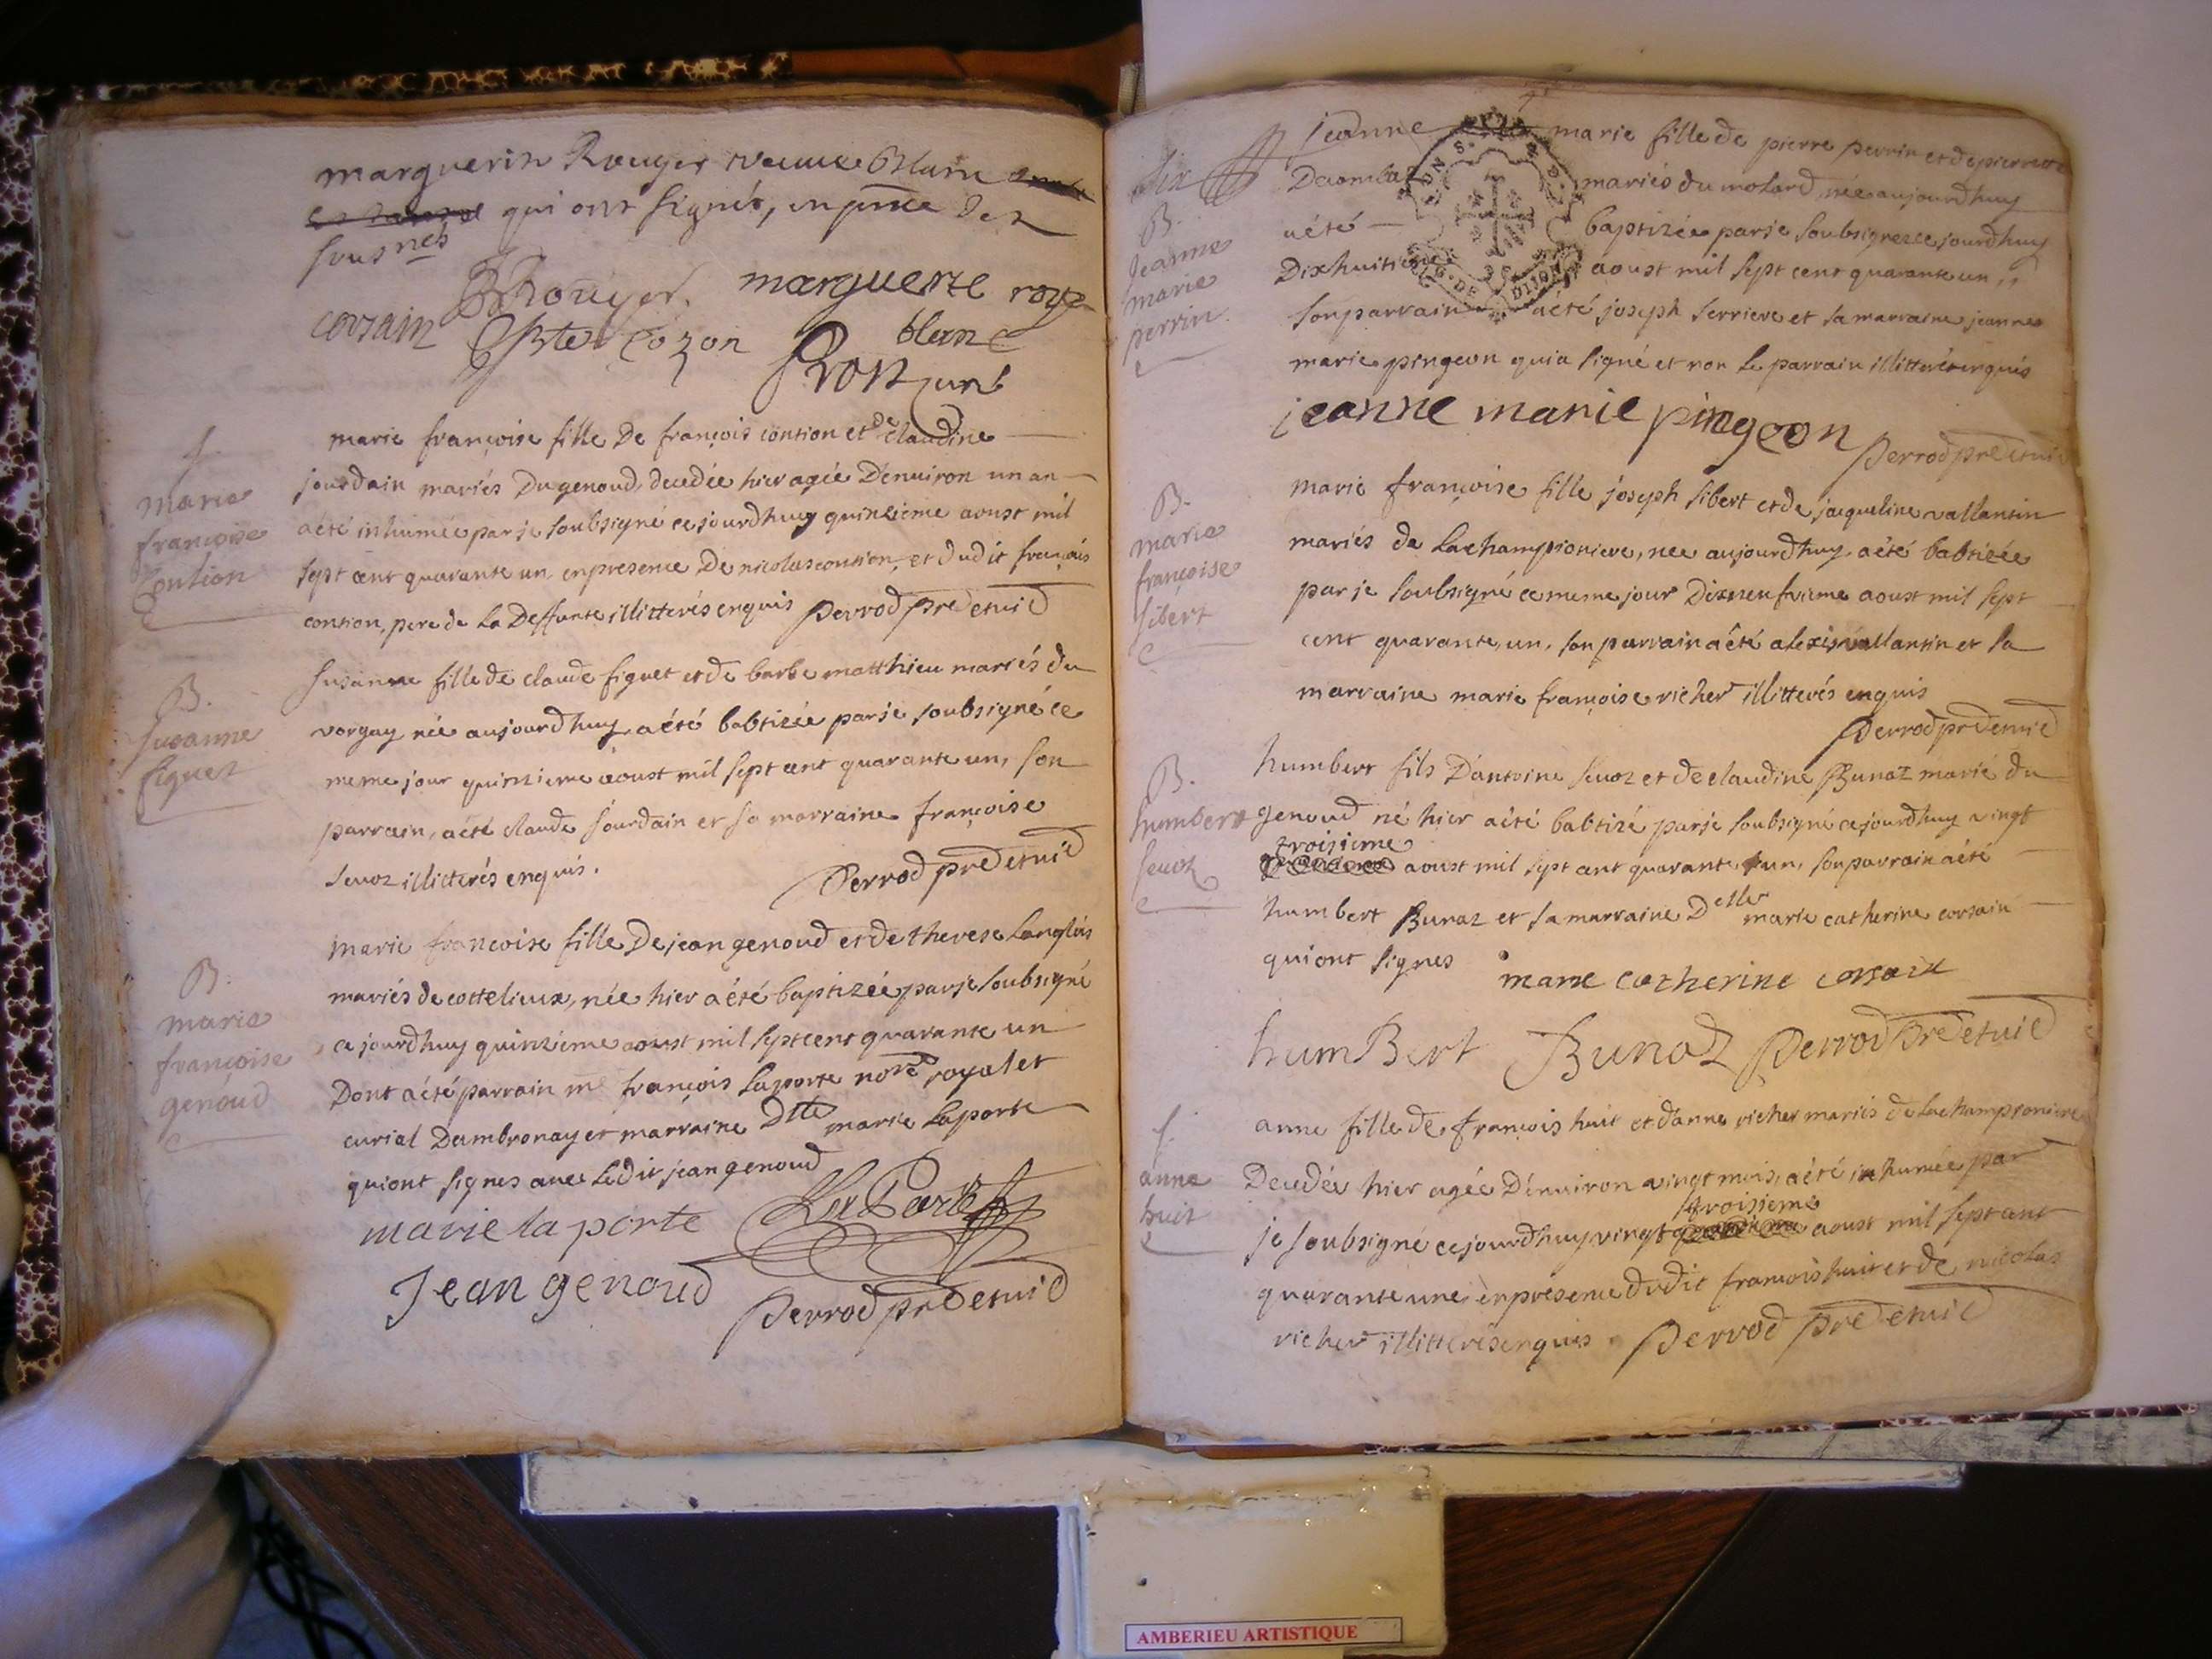 marguerite Rouger veuve Blanc
qui ont signés, en pnce des
sousnés
BRouger. marguerite rouge
corsain cozon blanc
Rost curé
f.
marie
françoise
Contion
marie françoise fille De françois contion et de claudine
jourdain mariés Du genoud, decedée hier agée D'environ un an
a été inhumée par je soubsigné ce jourdhuy quinzieme aoust mil
sept cent quarante un, en presence De nicolas contion, et dudit françois
contion, pere de La Deffunte illitterés enquis Perrod pre et vic
B.
susanne
figuet
susanne fille de claude figuet et de barbe matthieu mariés du
vorgay née aujourdhuy a été babtizée par je soubsigné ce
meme jour quinzieme aoust mil sept cent quarante un, son
parrain, a été claude jourdain et sa marraine françoise
sevoz illitterés enquis.
Perrod pre et vic
B.
marie
françoise
genoud
marie francoise fille De jean genoud et de therese Langlois
mariés de cottelieux, née hier a été baptizée par je soubsigné
ce jourdhuy quinzieme aoust mil sept cent quarante un
Dont a été parrain me françois Laporte nore royal et
curial Dambronay et marraine Dlle marie Laporte
qui ont signes avec Ledit jean genoud
marie la porte LaPorte
Jean genoud Perrod pre et vic
B.
Jeanne
marie
perrin
jeanne marie fille de pierre perrin et de pierrette
Decombaz mariés du molard, née aujourdhuy
a été baptizée par je soubsigné ce jourdhuy
Dixhuitieme aoust mil sept cent quarante un
son parrain a été joseph serriere et sa marraine jeanne
marie pingeon qui a signé et non Le parrain illitteré enquis
DIJON
jeanne marie pingeon
Perrod pre et vic
B.
marie
françoise
sibert
marie françoise fille joseph sibert et de jacqueline vallantin
mariés de Lachampioniere, née aujourdhuy a été babtizée
par je soubsigné ce meme jour Dixneufvieme aoust mil sept
cent quarante, un, son parrain a été alexis vallantin et sa
marraine marie françoise richer illitterés enquis
Perrod pre et vic
B.
humbert
sevoz
humbert fils D'antoine sevoz et de claudine Bunaz marié du
genoud né hier a été babtizé par je soubsigné ce jourdhuy vingt
troisieme
aoust mil sept cent quarante, un, son parrain a été
humbert Bunaz et sa marraine Delle marie catherine corsain
qui ont signes marie catherine corsain
humBert Bunaz Perrod Pre et vic
f.
anne
huit
anne fille de françois huit et d'anne richer mariés de Lachampioniere
Decedée hier agée D'environ vingt mois, a été inhumée par
troisieme
je soubsigné ce jourdhuy vingt aoust mil sept cent
quarante une, en presence dudit françois huit et de nicolas
richer illitterés enquis Perrod Pre et vic
AMBERIEU ARTISTIQUE